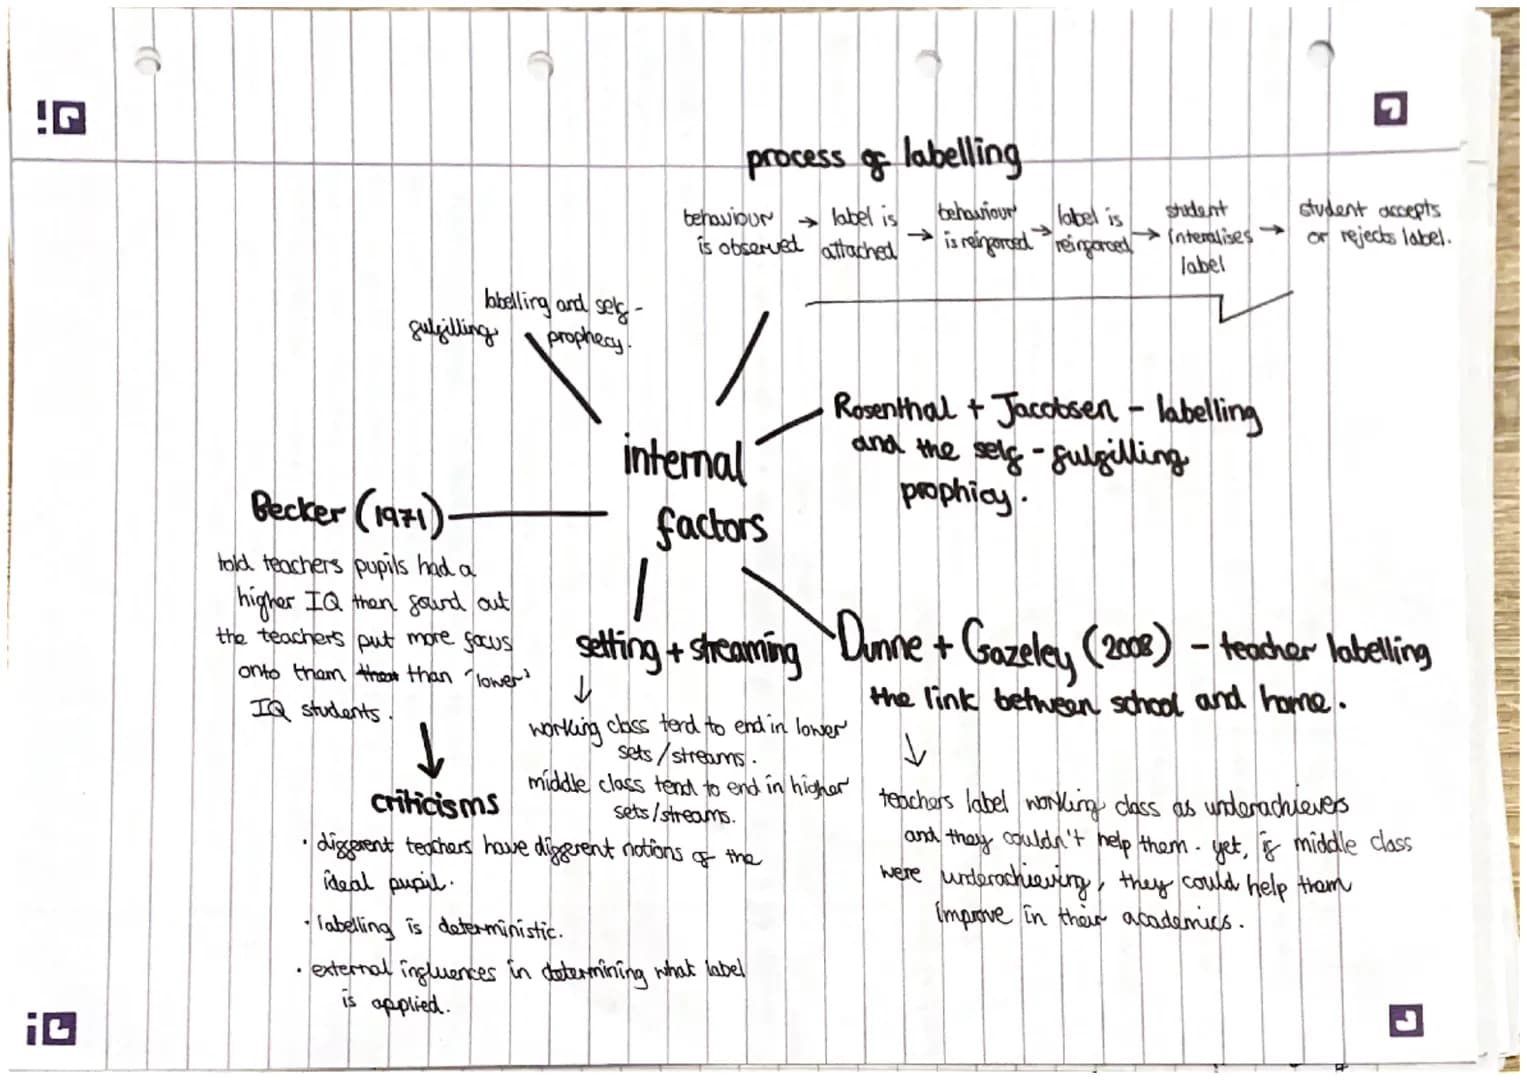 process of labelling
behaviour → label is → behaviour → label is → student → student accepts
is observed attached is reinforced reinforced interalises or rejects label.
label
labelling and self-
fulfilling prophecy.
Rosenthal + Jacobsen - labelling
and the self-fulfilling
prophicy.
internal
factors
Becker (1971)
told teachers pupils had a
higher IQ then found out
the teachers put more focus
onto them than "lower"
IQ students.
↓
criticisms
· different teachers have different notions of the
ideal pupil.
· labelling is deterministic.
· external influences in determining what label
is applied.
setting + streaming
↓
working class tend to end in lower
sets/streams.
middle class tend to end in higher
sets/streams.
Dunne + Gazeley (2008) - teacher labelling
the link between school and home.
↓
teachers label working class as underachievers
and they couldn't help them. yet, if middle class
were underachieving, they could help them
improve in their academics.